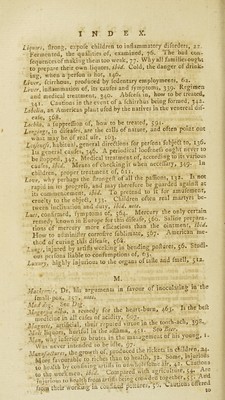 INDEX.
Liquors, strong, expose children to inflammatory disorders, 21.
Fermented, the qualities of, examined, 76. The bad con-
sequences of making them too weak, 77. Why all families ought
to prepare their own liquors, ibid. Cold, the danger of drink-
ing, when a person is hot, 146.
Liver, schirrous, produced by sedentary employments, 62.
Liver, inflammation of, its causes and symptoms, 339. Regimen
and medical treatment, 340. Abscess in, how to be treated,
341. Cautions in the event of a schirrhus being formed, 342.
Lobelia, an American plant used by the natives in the venereal di-
sease, 568.
Lochia, a suppression of, how to be treated, 594.
Longings, in diseases, are the calls of nature, and often point out
what may be of real use, 203.
Looseness, habitual, general directions for persons subject to, 156.
Its general causes, 346. A periodical looseness ought never to
be stopped, 347. Medical treatment of, according to its various
causes, ibid. Means of checking it when necessary, 349. In
children, proper treatment of, 611.
Love, why perhaps the strongest of all the passions, 132. Is not
rapid in its progress, and may therefore be guarded against at
its commencement, ibid. To pretend to it for amusement,
cruelty to the object, 133. Children often real martyrs be-
tween inclination and duty, ibid. note.
Lues, confirmed, symptoms of, 564. Mercury the only certain
remedy known in Europe for this disease, 565. Saline prepara-
tions of mercury more efficacious than the ointment, ibid.
How to administer corrosive sublimate, 567. American me-
thod of curing this disease, 568.
Lungs, injured by artists working in bending postures, 56. Studi-
ous persons liable to consumptions of, 63.
Luxury, highly injurious to the organs of taste and smell, 512.
M.
Mackenzie, Dr. his arguments in favour of inoculating in the
small-pox, 257, note.
Mad dog. See Dog.
Magnesia alba, a remedy for the heart-burn, 463. Is the best
medicine in all cases of acidity, 609.
Magnets, artificial, their reputed virtue in the tooth-ach, 398.
Malt liquors, hurtful in the asthma, See Beer.
Man, why inferior to brutes in the management of his young, 1.
Was never intended to be idle, 97.
Manufactures, the growth of, produced the rickets in children, 24.
More favourable to riches than to health, 32. Some, injurious
to health by confining artists in unwholesome air, Cautions
to the workmen, ibid. Compared with agriculture, 54. Are
injurious to health from artists being crowded together, And
from their working in confined postures, 57. Cautions offered
to